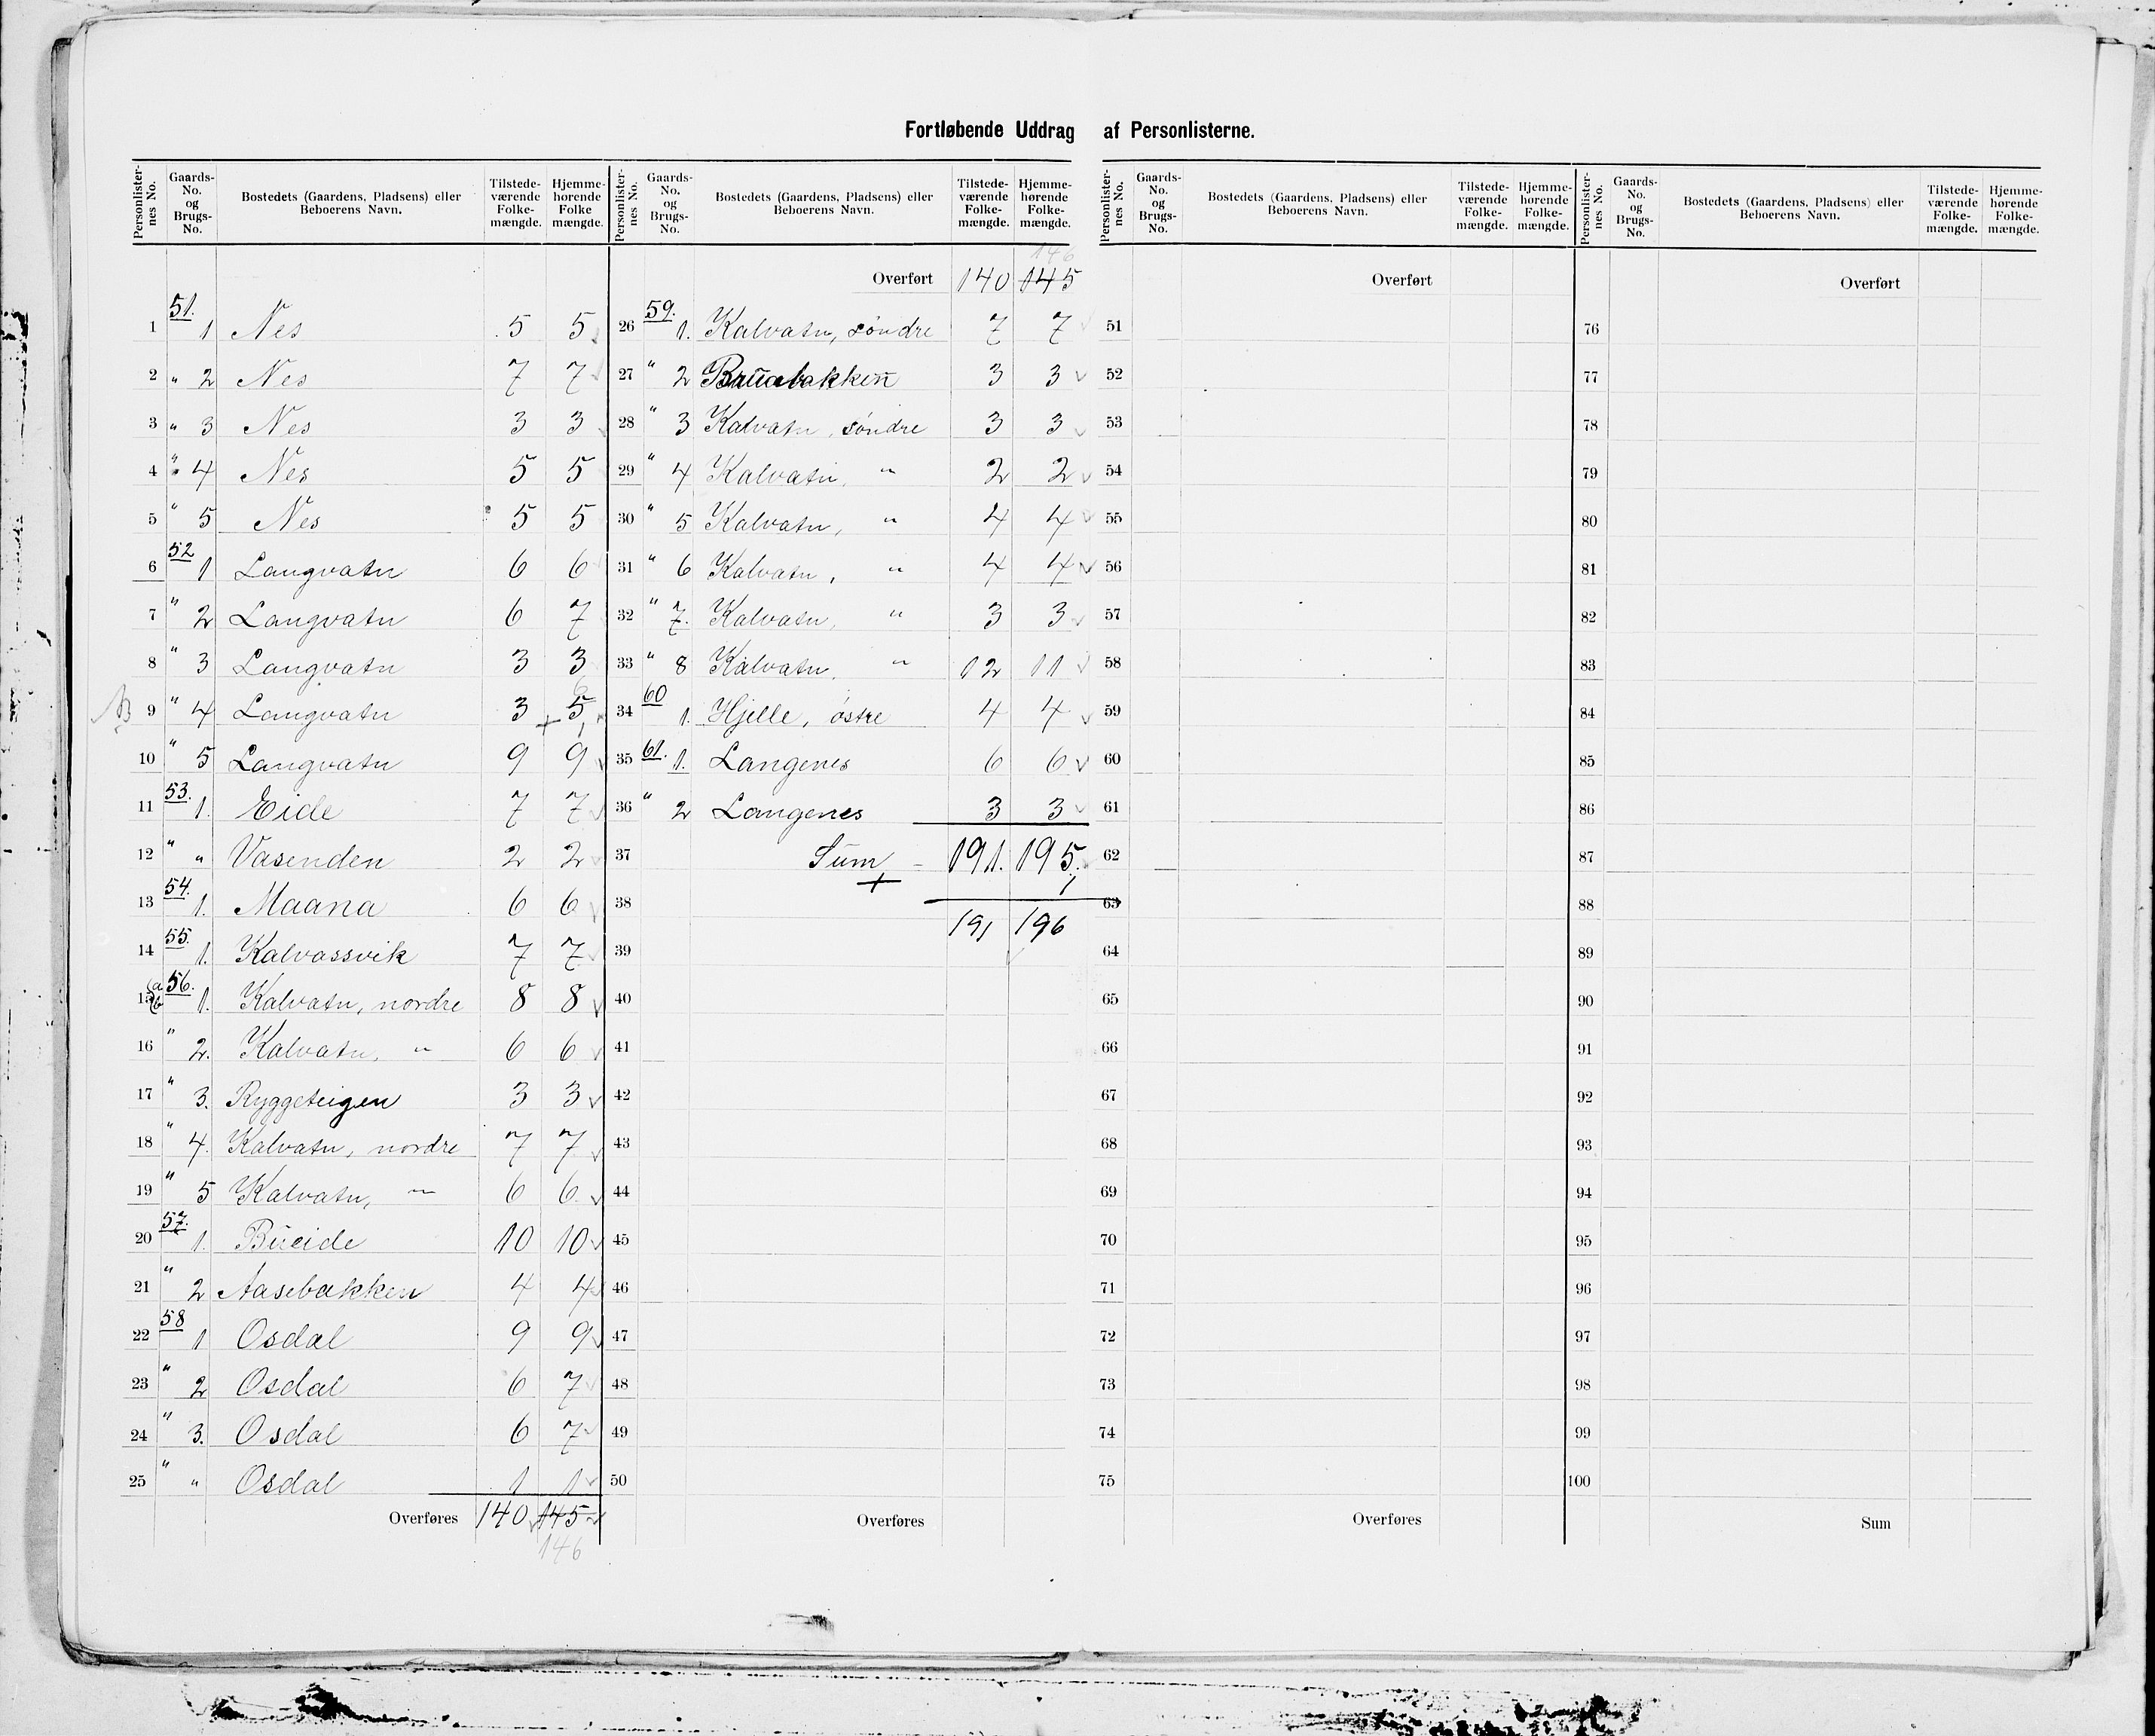 Fortløbende Uddrag af Personlisterne.
Personlisternes No. Gaards-No. og Brugs-No. Bostedets (Gaardens, Pladsens) eller Beboerens Navn. Tilstedeværende Folkemængde. Hjemmehørende Folkemængde.
1 51. 1 Nes 5 5
2 " 2 Nes 7 7
3 " 3 Nes 3 3
4 " 4 Nes 5 5
5 " 5 Nes 5 5
6 52 1 Langvatn 6 6
7 " 2 Langvatn 6 7
8 " 3 Langvatn 3 3
9 " 4 Langvatn 3 + 5 6 1
10 " 5 Langvatn 9 9
11 53. 1. Eide 7 7
12 " " Vasenden 2 2
13 54. 1. Maana 6 6
14 55. 1. Kalvassvik 7 7
15 a b 56. 1. Kalvatn, nordre 8 8
16 " 2. Kalvatn, " 6 6
17 " 3. Ryggeteigen 3 3
18 " 4. Kalvatn, nordre 7 7
19 " 5 Kalvatn, " 6 6
20 57. 1. Bueide 10 10
21 " 2 Aasebakken 4 4
22 58 1 Osdal 9 9
23 " 2 Osdal 6 7
24 " 3. Osdal 6 7
25 " " Osdal 1 1
Overføres 140 145
146
Personlisternes No. Gaards-No. og Brugs-No. Bostedets (Gaardens, Pladsens) eller Beboerens Navn. Tilstedeværende Folkemængde. Hjemmehørende Folkemængde.
146
Overført 140 145
26 59. 1. Kalvatn, söndre 7 7
27 " 2 Bruabakken 3 3
28 " 3 Kalvatn, söndre 3 3
29 " 4 Kalvatn, " 2 2
30 " 5 Kalvatn, " 4 4
31 " 6 Kalvatn, " 4 4
32 " 7. Kalvatn, " 3 3
33 " 8 Kalvatn, " 12 11
34 60 1. Hjelle, østre 4 4
35 61. 1. Langenes 6 6
36 " 2 Langenes 3 3
37 Sum 191. 195.
38 + 1
191 196
39
40
41
42
43
44
45
46
47
48
49
50
Overføres
Personlisternes No. Gaards-No. og Brugs-No. Bostedets (Gaardens, Pladsens) eller Beboerens Navn. Tilstedeværende Folkemængde. Hjemmehørende Folkemængde.
Overført
51
52
53
54
55
56
57
58
59
60
61
62
63
64
65
66
67
68
69
70
71
72
73
74
75
Overføres
Personlisternes No. Gaards-No. og Brugs-No. Bostedets (Gaardens, Pladsens) eller Beboerens Navn. Tilstedeværende Folkemængde. Hjemmehørende Folkemængde.
Overført
76
77
78
79
80
81
82
83
84
85
86
87
88
89
90
91
92
93
94
95
96
97
98
99
100
Sum